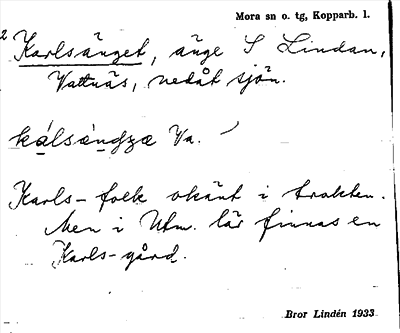 Mora sn o. tg, Kopparb. l.
2
Karlsänget, änge S Lindan,
Vattnäs, nedåt sjön.
kálsàndzæ Va.
Karls-folk okänt i trakten.
Men i Utm. lär finnas en
Karls-gård.
Bror Lindén 1933